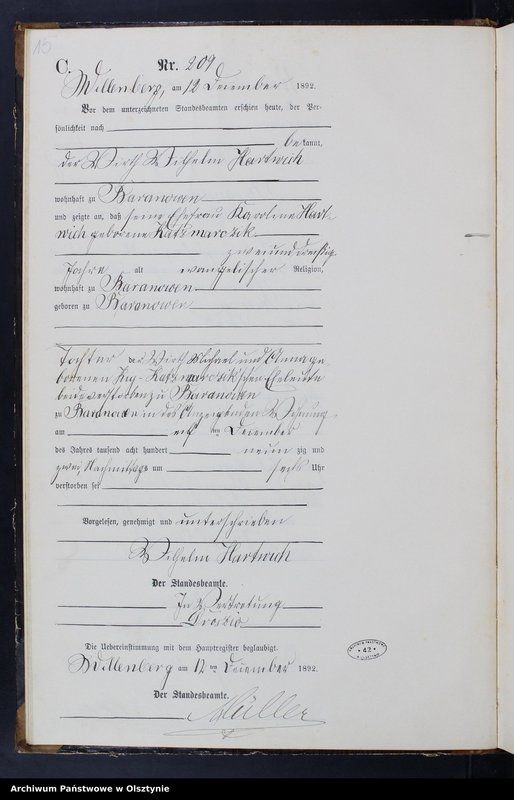 15
C.
Nr. 209
Willenberg, am 12 Dezember 1892.
Vor dem unterzeichneten Standesbeamten erschien heute, der Per-
sönlichkeit nach
bekannt,
der Wirth Wilhelm Hartwich
wohnhaft zu Baranowen
und zeigte an, daß seine Ehefrau Karoline Hart-
wich geborene Katzmarczik
zweiunddreißig
Jahre alt evangelischer Religion,
wohnhaft zu Baranowen
geboren zu Baranowen
Tochter der Wirth Michael und Anna ge-
borenen Katzmarczik'schen Eheleute
beide verstorben zu Baranowen
zu Baranowen in des Anzeigenden Wohnung
am elf ten Dezember
des Jahres tausend acht hundert neun zig und
zwei Nachmittags um sechs Uhr
verstorben sei
Vorgelesen, genehmigt und unterschrieben
Wilhelm Hartwich
Der Standesbeamte.
In Vertretung
Die Uebereinstimmung mit dem Hauptregister beglaubigt.
Willenberg am 12 ten Dezember 1892.
Der Standesbeamte.
Müller
42
Archiwum Państwowe w Olsztynie